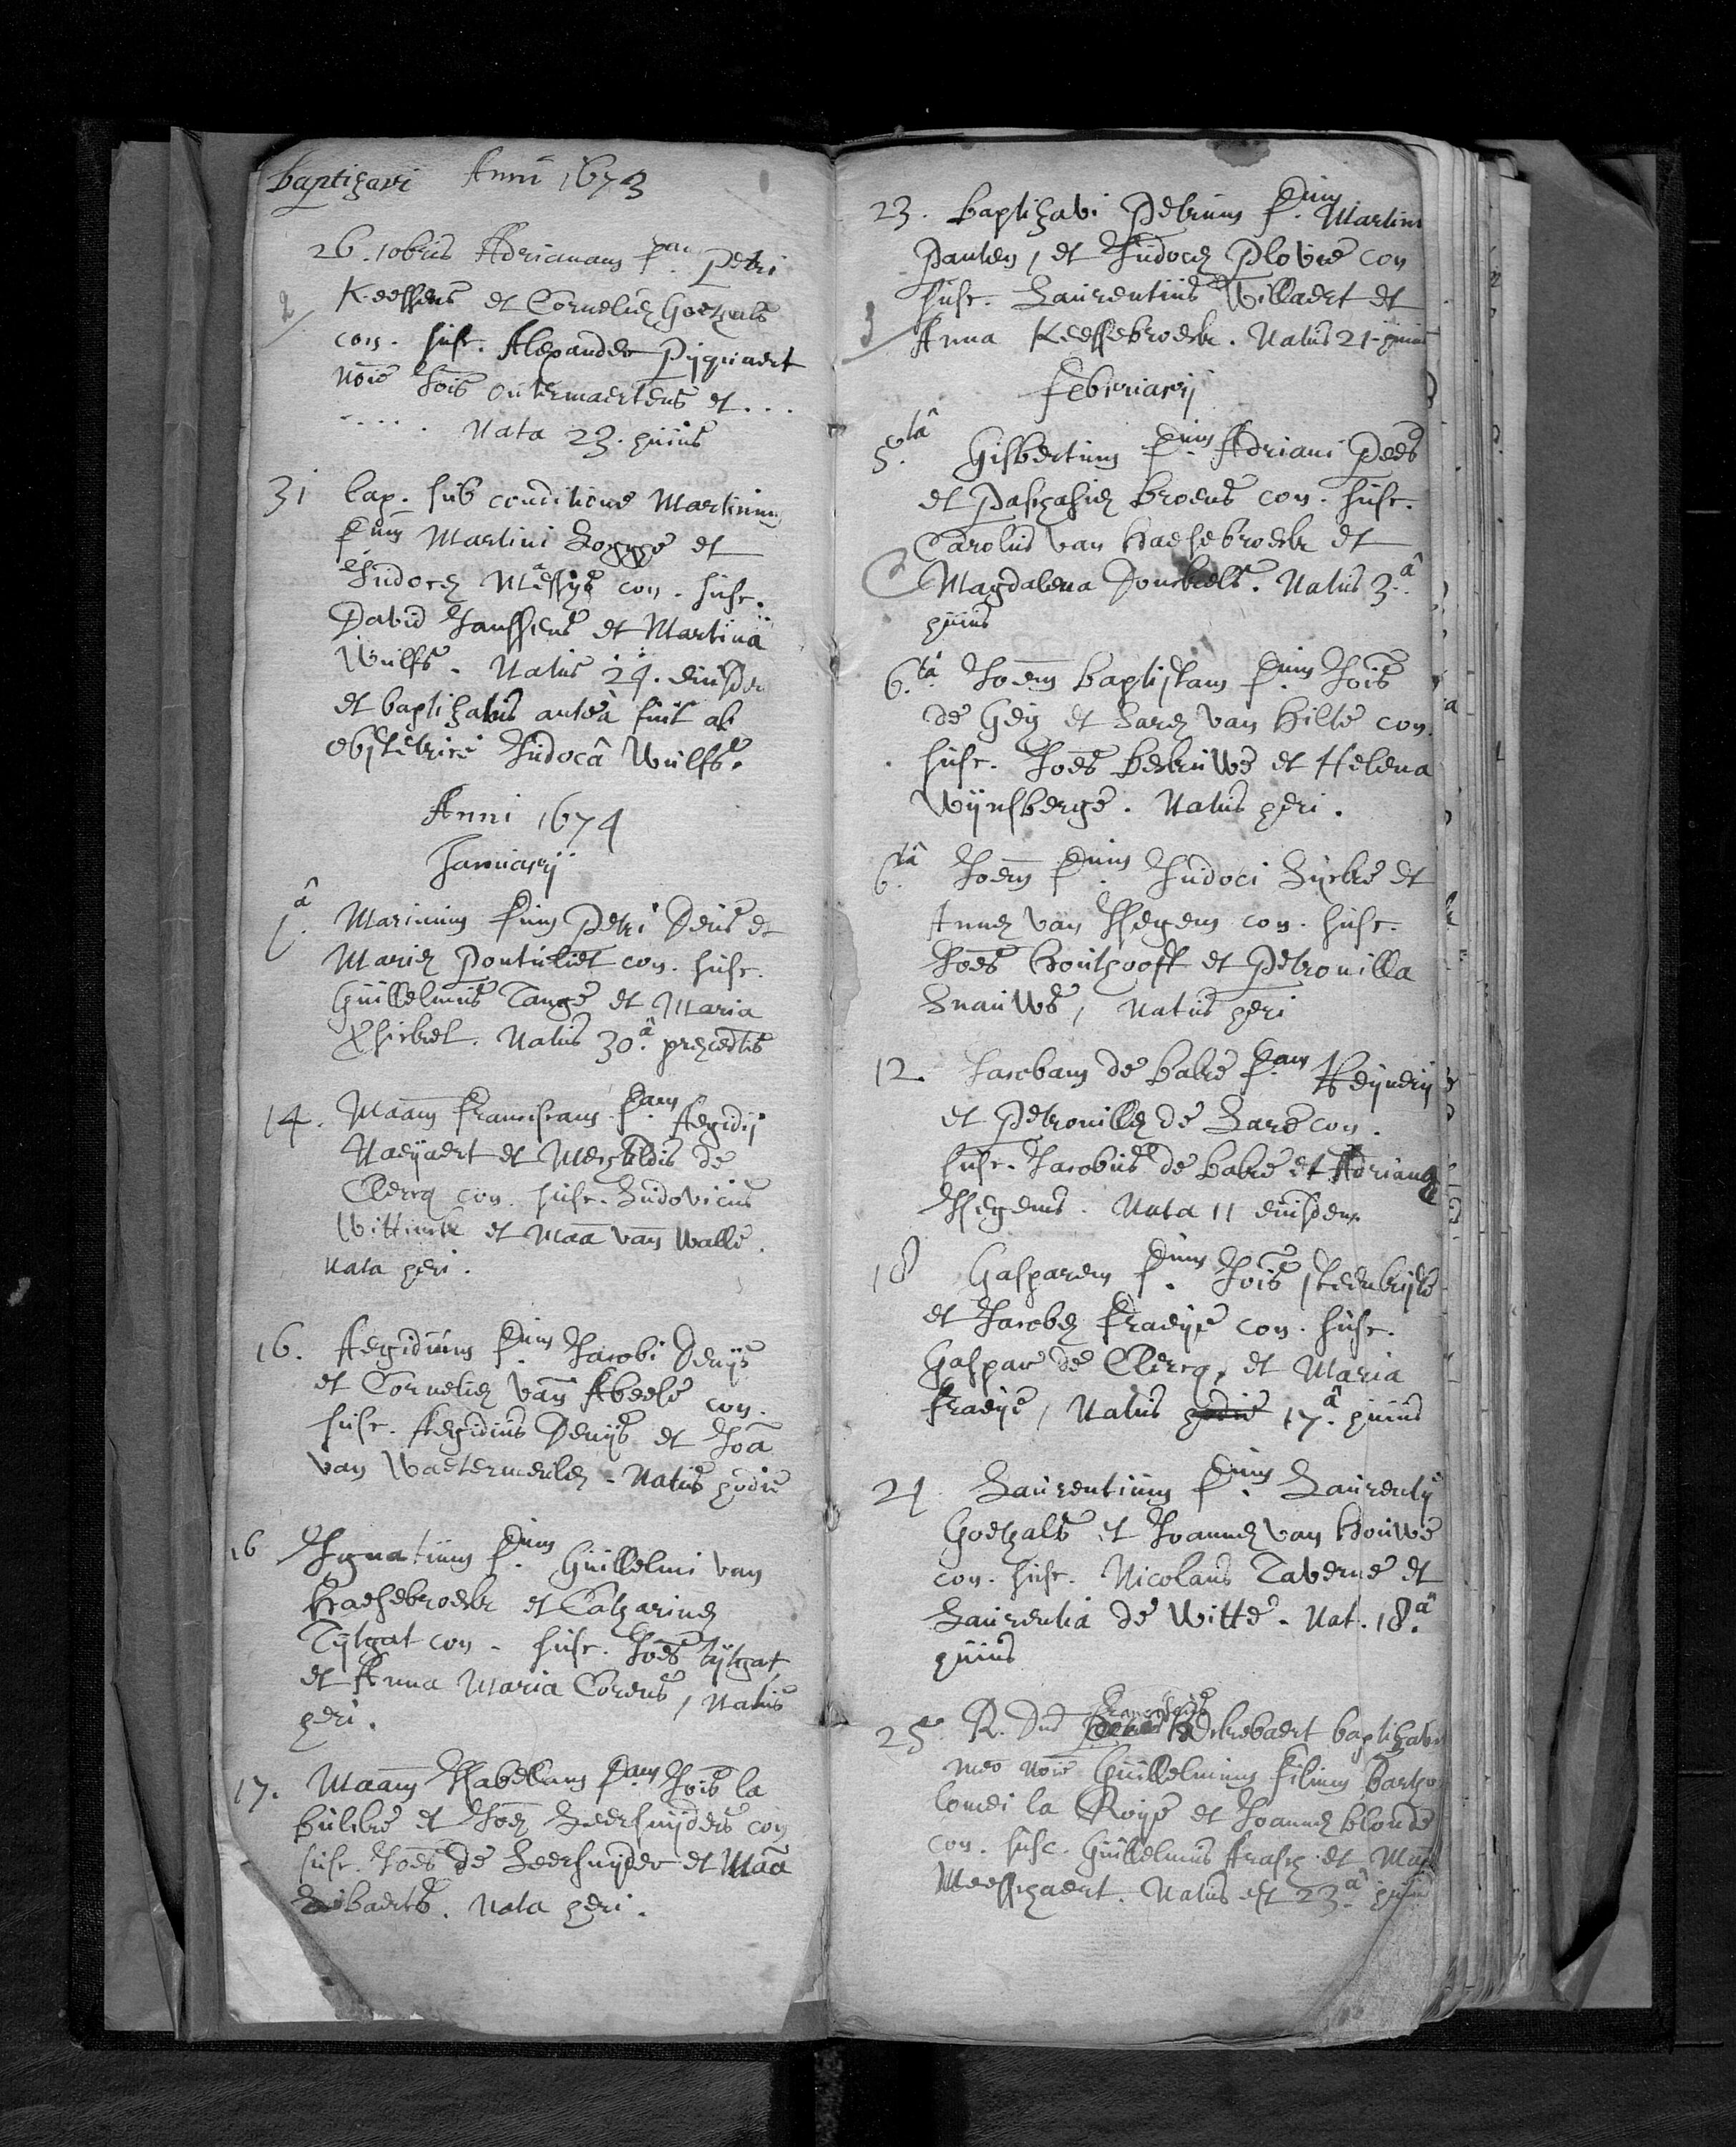 baptizavi Anni 1673
26. 10bris Adrianam f.am Petri
Keessens et Corneliæ Goethals
con. susc. Alexander Pyquaert
noīe Joīs Outermaertens et ...
..... Nata 23. huius
31 bap. sub conditione Martinum
f.um Martini Zogge et
Judocæ Maessys con. susc.
David Janssens et Martina
Wulfs. Natus 24. eiusdem
et baptizatus anteà fuit ab
obstetrice Judocâ Wulfs.
Anni 1674
Januarij
1.â Marinum f.um Petri Deus et
Mariæ Pontuliet con. susc.
Guillelmus Tange et Maria
. Natus 30.â præcedtis
14. Maam Franciscam f.am Aegidij
Naeyaert et Mechtildis de
Clercq con. susc. Ludovicus
Wittinck et Maa van Walle.
Nata heri.
16. Aegidium f.um Jacobi Denijs
et Corneliæ van Abeele con.
susc. Aegidius Denijs et Joā
van Waetermeulen. Natus hodie
16 Ignatium f.um Guillelmi van
Haesebroeck et Catharinæ
Tijtgat con. susc. Joēs Tijtgat
et Anna Maria Coreus, Natus
heri.
17. Maam Isabellam f.am Joīs la
Bulcke et Joæ Leersnijders con
susc. Joēs de Leersnijder et Maa
. Nata heri.
23. baptizavi Petrum f.um Martini
Pauten, et Judocæ Plovie con
susc. Laurentius Willaert et
Anna Keessebroeck. Natus 21 huius
Februarij
5.tâ Gisbertum f.um Adriani Pees
et Paschasiæ Broens con. susc.
Carolus van Haesebroeck et
Magdalena Donckels. Natus 3.â
huius
6.tâ Joēm Baptistam f.um Joīs
de Gey et Saræ van Hilte con.
susc. Joēs Berbuwe et Helena
Wijnsberge. Natus heri.
6.tâ Joēm f.um Judoci Lycke et
Annæ van Iseghem con. susc.
Joēs Houthooft et Petronilla
Snauws, Natus heri
12. Jacobam de Bakre f.am
et Petronillæ de Lare con.
susc. Jacobus de Bakre et Adriana
Iseghems. Nata 11 eiusdem
18 Gasparem f.um Joīs Steenbrijts
et Jacobæ Fraeye con. susc.
Gaspar de Clercq, et Maria
Fraeye, Natus hodie 17.â huius
24. Laurentium f.um Laurentij
Goethals et Joannæ van Houwe
con. susc. Nicolaus Taverne et
Laurentia de Witte. Nat. 18.â
huius
25 R. Dus Franciscus baptizavit
meo noīe Guillelmum filium Bartho
lomei la Roye et Joannæ Blonde
con. susc. Guillelmus et
Meesschaert. Natus est 23.â huius